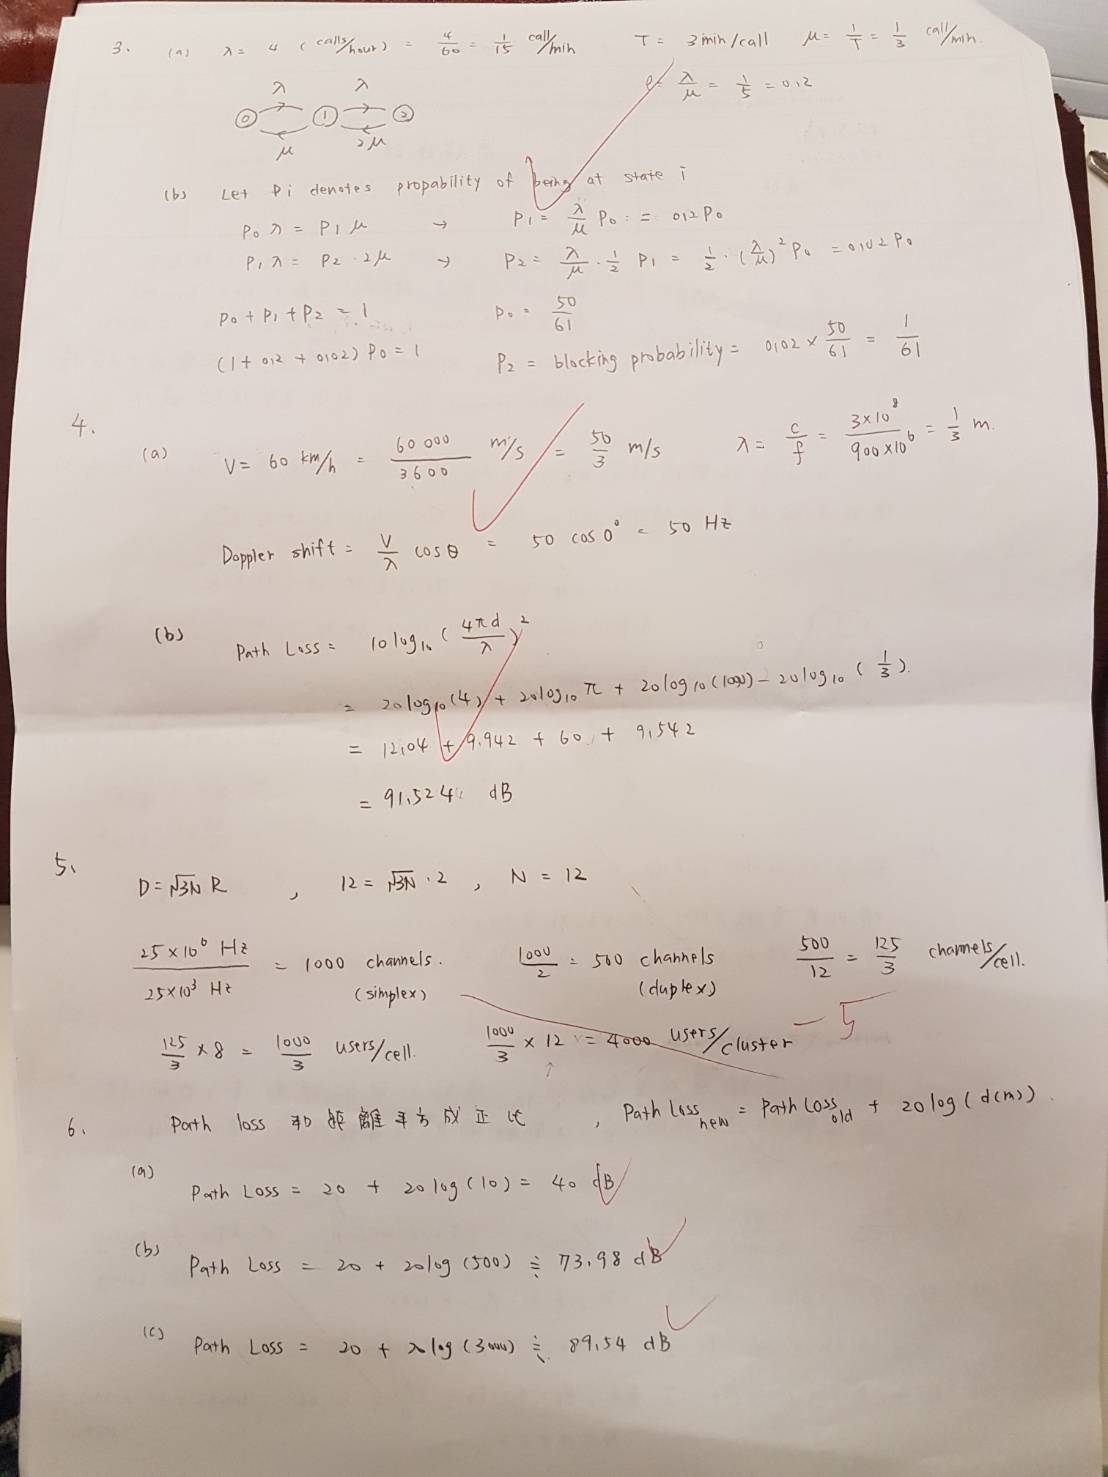 3. (a) λ = 4 (calls/hour) = 4/60 = 1/15 call/min T = 3 min/call μ = 1/T = 1/3 call/min.
ρ = λ/μ = 1/5 = 0.2
λ λ
0 1 2
μ 2μ
(b) Let Pi denotes propability of being at state i
P0 λ = P1 μ → P1 = λ/μ P0 = 0.2 P0
P1 λ = P2 · 2μ → P2 = λ/μ · 1/2 P1 = 1/2 · (λ/μ)² P0 = 0.02 P0
P0 + P1 + P2 = 1 P0 = 50/61
(1 + 0.2 + 0.02) P0 = 1 P2 = blocking probability = 0.02 × 50/61 = 1/61
4.
(a) V = 60 km/h = 60000/3600 m/s = 50/3 m/s λ = c/f = 3×10⁸/900×10⁶ = 1/3 m.
Doppler shift = V/λ cos θ = 50 cos 0° = 50 Hz
(b) Path Loss = 10 log₁₀ (4πd/λ)²
= 20 log₁₀(4) + 20 log₁₀ π + 20 log₁₀(1000) - 20 log₁₀ (1/3).
= 12.04 + 9.942 + 60 + 9.542
= 91.524 dB
5.
D = √3N R , 12 = √3N · 2 , N = 12
25×10⁶ Hz/25×10³ Hz = 1000 channels. (simplex) 1000/2 = 500 channels (duplex) 500/12 = 125/3 channels/cell.
125/3 × 8 = 1000/3 users/cell. 1000/3 × 12 = 4000 users/cluster -5
6. Path loss 和 距離平方成正比 , Path Loss new = Path Loss old + 20 log (d(m)).
(a) Path Loss = 20 + 20 log (10) = 40 dB
(b) Path Loss = 20 + 20 log (500) ≒ 73.98 dB
(c) Path Loss = 20 + 20 log (3000) ≒ 89.54 dB